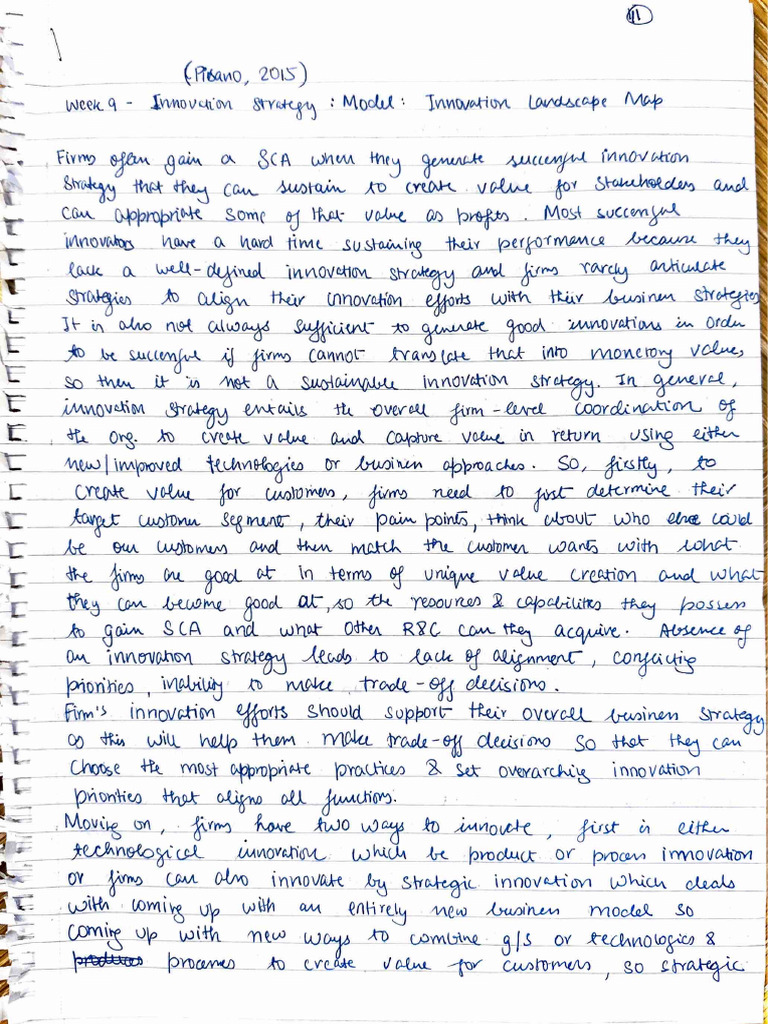 11
(Pisano, 2015)
Week 9 - Innovation Strategy : Model : Innovation Landscape Map
Firms often gain a SCA when they generate successful innovation
strategy that they can sustain to create value for stakeholders and
can appropriate some of that value as profits. Most successful
innovators have a hard time sustaining their performance because they
lack a well-defined innovation strategy and firms rarely articulate
strategies to align their innovation efforts with their business strategies
It is also not always sufficient to generate good innovations in order
to be successful if firms cannot translate that into monetory value,
so then it is not a sustainable innovation strategy. In general,
innovation strategy entails the overall firm-level coordination of
the org. to create value and capture value in return using either
new/improved technologies or business approaches. So, firstly, to
create value for customers, firms need to first determine their
target customer segment, their pain points, think about who could
be our customers and then match the customer wants with what
the firms are good at in terms of unique value creation and what
they can become good at, so the resources & capabilities they possess
to gain SCA and what other R&C can they acquire. Absence of
an innovation strategy leads to lack of alignment, conflicting
priorities, inability to make trade-off decisions.
Firm's innovation efforts should support their overall business strategy
as this will help them make trade-off decisions so that they can
choose the most appropriate practices & set overarching innovation
priorities that aligns all functions.
Moving on, firms have two ways to innovate, first is either
technological innovation which be product or process innovation
or firms can also innovate by strategic innovation which deals
with coming up with an entirely new business model so
coming up with new ways to combine g/s or technologies &
processes to create value for customers, so strategic